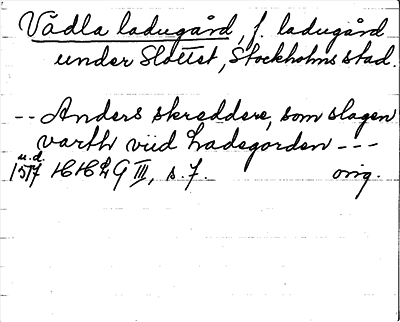 Vådla ladugård, f. ladugård
under Slottet, Stockholms stad.
-- Anders skreddere, som slagen
varth viid Ladegorden ---
u.d.
1517 HH 2/9 III, s. 7. orig.